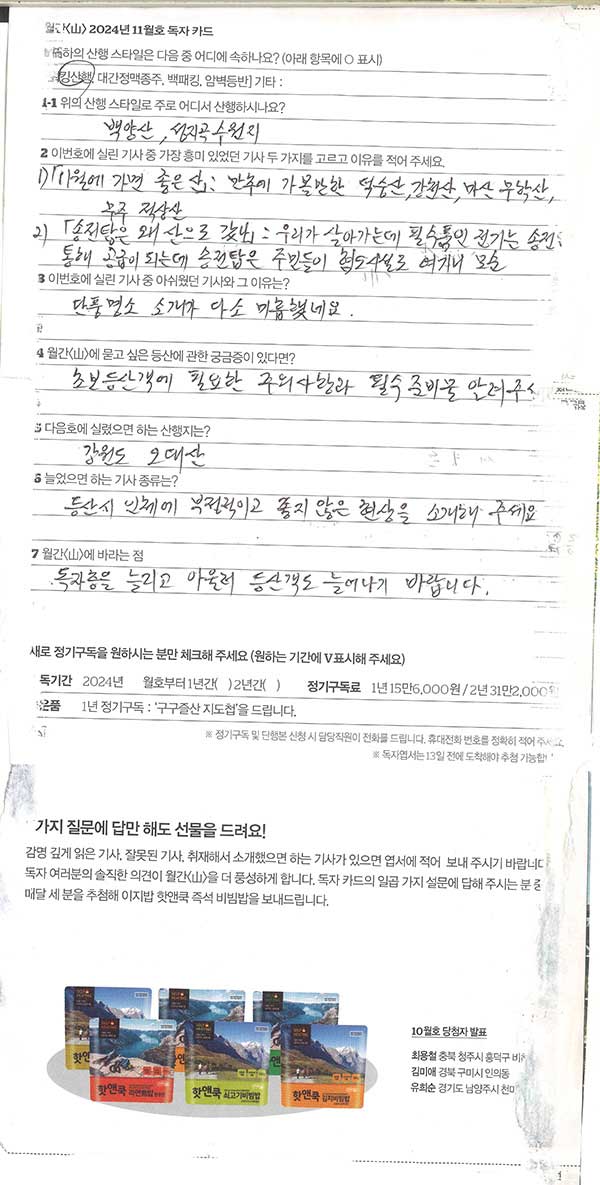 월간〈山〉 2024년 11월호 독자 카드
귀하의 산행 스타일은 다음 중 어디에 속하나요? (아래 항목에 O 표시)
킹산행, 대간정맥종주, 백패킹, 암벽등반] 기타 :
1-1 위의 산행 스타일로 주로 어디서 산행하시나요?
백양산, 성지곡수원지
2 이번호에 실린 기사 중 가장 흥미 있었던 기사 두 가지를 고르고 이유를 적어 주세요.
1) 「11월에 가면 좋은 산」: 만추에 가볼만한 덕숭산, 강천산, 마산 무학산,
무주 적상산
2) 「송전탑은 왜 산으로 갔나」: 우리가 살아가는데 필수품인 전기는 송전
통해 공급이 되는데 송전탑은 주민들이 혐오시설로 여기니 모순
3 이번호에 실린 기사 중 아쉬웠던 기사와 그 이유는?
단풍명소 소개가 다소 미흡했네요.
4 월간〈山〉에 묻고 싶은 등산에 관한 궁금증이 있다면?
초보등산객에 필요한 주의사항과 필수 준비물 알려주시
5 다음호에 실렸으면 하는 산행지는?
강원도 오대산
6 늘었으면 하는 기사 종류는?
등산시 인체에 부정적이고 좋지 않은 현상을 소개해 주세요
7 월간〈山〉에 바라는 점
독자층을 늘리고 아울러 등산객도 늘어나기 바랍니다.
새로 정기구독을 원하시는 분만 체크해 주세요 (원하는 기간에 V표시해 주세요)
독기간 2024년 월호부터 1년간( ) 2년간( ) 정기구독료 1년 15만6,000원 / 2년 31만2,000원
은품 1년 정기구독 : '구구즐산 지도첩'을 드립니다.
※ 정기구독 및 단행본 신청 시 담당직원이 전화를 드립니다. 휴대전화 번호를 정확히 적어 주세요.
※ 독자엽서는 13일 전에 도착해야 추첨 가능합니
가지 질문에 답만 해도 선물을 드려요!
감명 깊게 읽은 기사, 잘못된 기사, 취재해서 소개했으면 하는 기사가 있으면 엽서에 적어 보내 주시기 바랍니다
독자 여러분의 솔직한 의견이 월간〈山〉을 더 풍성하게 합니다. 독자 카드의 일곱 가지 설문에 답해 주시는 분 중
매달 세 분을 추첨해 이지밥 핫앤쿡 즉석 비빔밥을 보내드립니다.
핫앤쿡 라면애밥
핫앤쿡 쇠고기비빔밥
핫앤쿡 김치비빔밥
10월호 당첨자 발표
최용철 충북 청주시 흥덕구 비하
김미애 경북 구미시 인의동
유희순 경기도 남양주시 천마